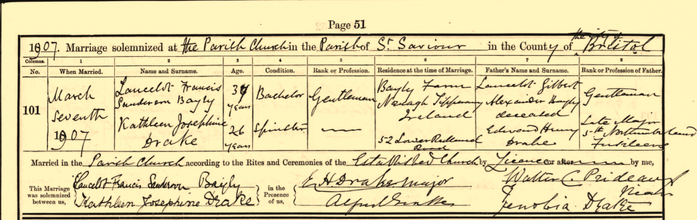 Page 51
1907. Marriage solemnized at the Parish Church in the Parish of St Saviour in the County of the city of Bristol
Columns. 1 2 3 4 5 6 7 8
No. When Married. Name and Surname. Age. Condition. Rank or Profession. Residence at the time of Marriage. Father's Name and Surname. Rank or Profession of Father.
101 March Seventh 1907
Lancelot Francis Sanderson Bayly 34 years Bachelor Gentleman Bayly Farm Nenagh Tipperary Ireland Lancelot Gilbert Alexander Bayly deceased Gentleman
Kathleen Josephine Drake 26 years Spinster — 52 Lower Redland Road Edward Henry Drake Late Major 5th Northumberland Fusileers
Married in the Parish Church according to the Rites and Ceremonies of the Established Church by Licence or after — by me,
This Marriage was solemnized between us, Lancelot Francis Sanderson Bayly in the Presence of us, E H Drake Major Walter C
Kathleen Josephine Drake Alfred Drake Zenobia Drake